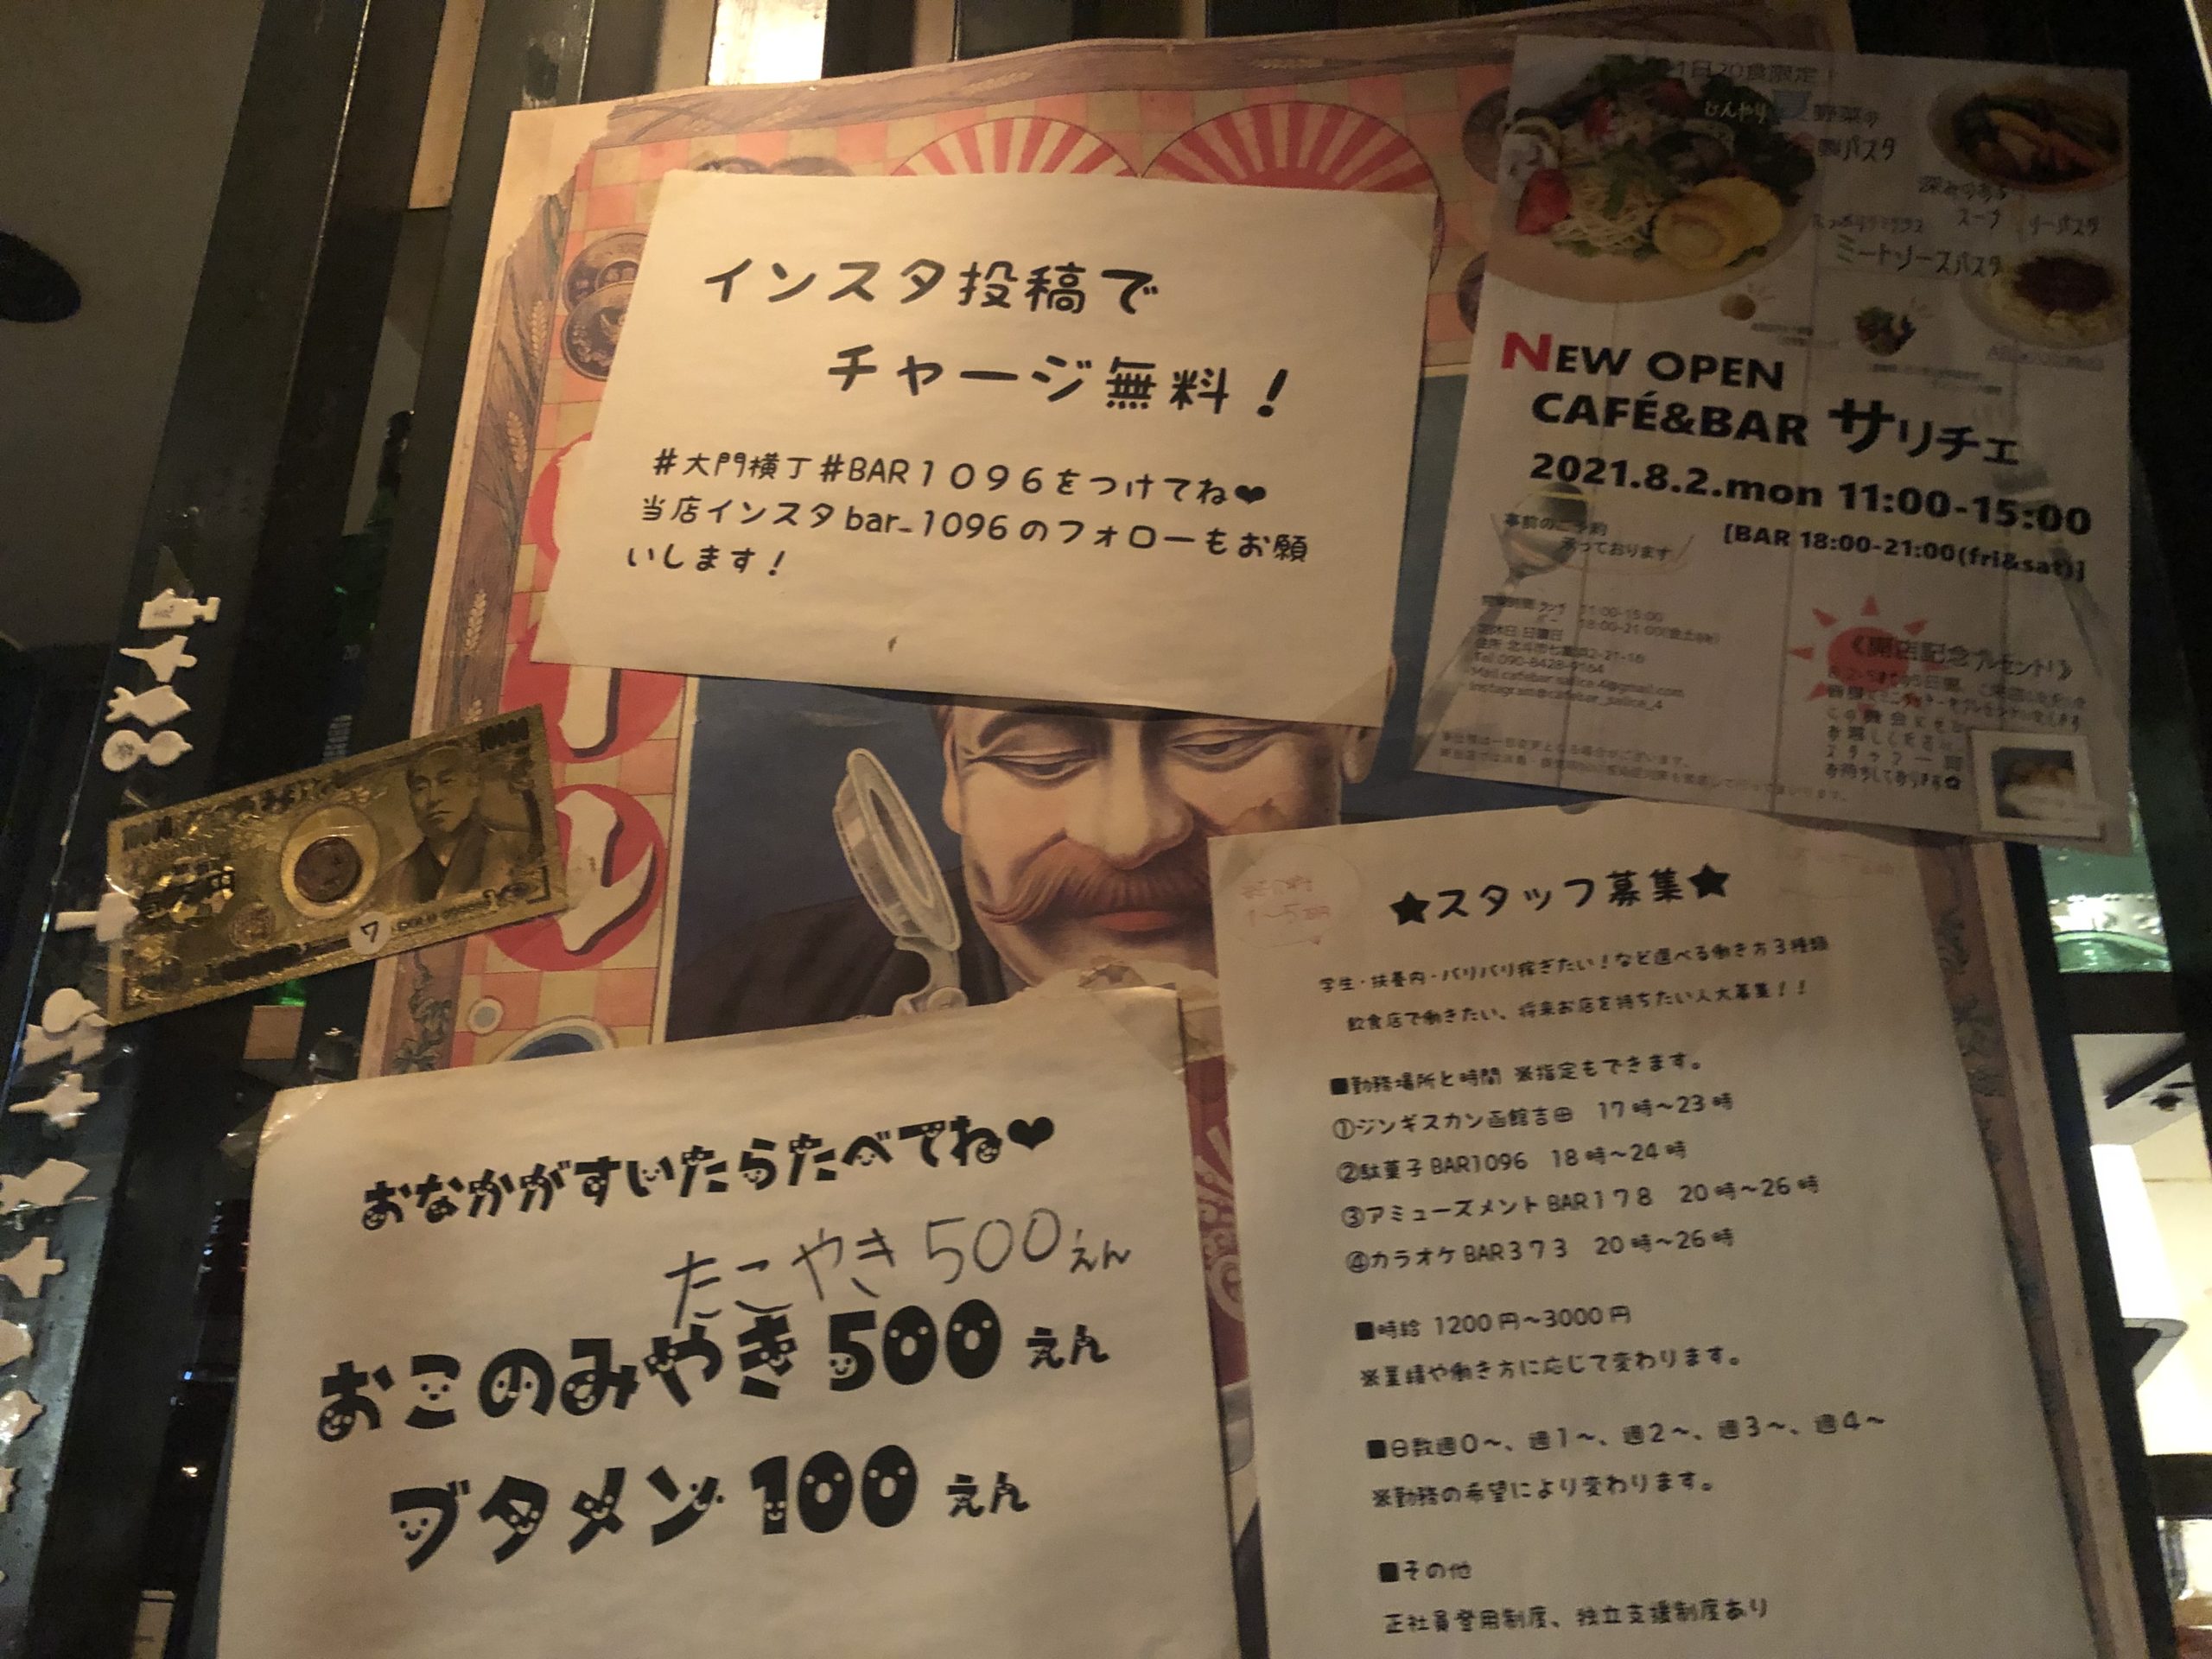 インスタ投稿で
チャージ無料！
#大門横丁#BAR１０９６をつけてね❤
当店インスタbar_1096のフォローもお願
いします！
1日20食限定
ひんやり
野菜の
パスタ
スープ
ミートソースパスタ
NEW OPEN
CAFÉ&BAR サリチェ
2021.8.2.mon 11:00-15:00
[BAR 18:00-21:00(fri&sat)]
事前のご予約
承っております
11:00-15:00
定休日 日曜日
住所 北斗市七重浜2-21-16
Tel.090-8428-9164
Instagram@cafebar_salice_4
《開店記念プレゼント!》
お待ちしております
10000
7
★スタッフ募集★
学生・扶養内・バリバリ稼ぎたい！など選べる働き方３種類
飲食店で働きたい、将来お店を持ちたい人大募集！！
■勤務場所と時間 ※指定もできます。
①ジンギスカン函館吉田　17時～23時
②駄菓子BAR1096　18時～24時
③アミューズメントBAR１７８　20時～26時
④カラオケBAR３７３　20時～26時
■時給 1200円～3000円
※業績や働き方に応じて変わります。
■日数週０～、週１～、週２～、週３～、週４～
※勤務の希望により変わります。
■その他
正社員登用制度、独立支援制度あり
おなかがすいたらたべてね❤
たこやき500えん
おこのみやき500えん
ブタメン100えん